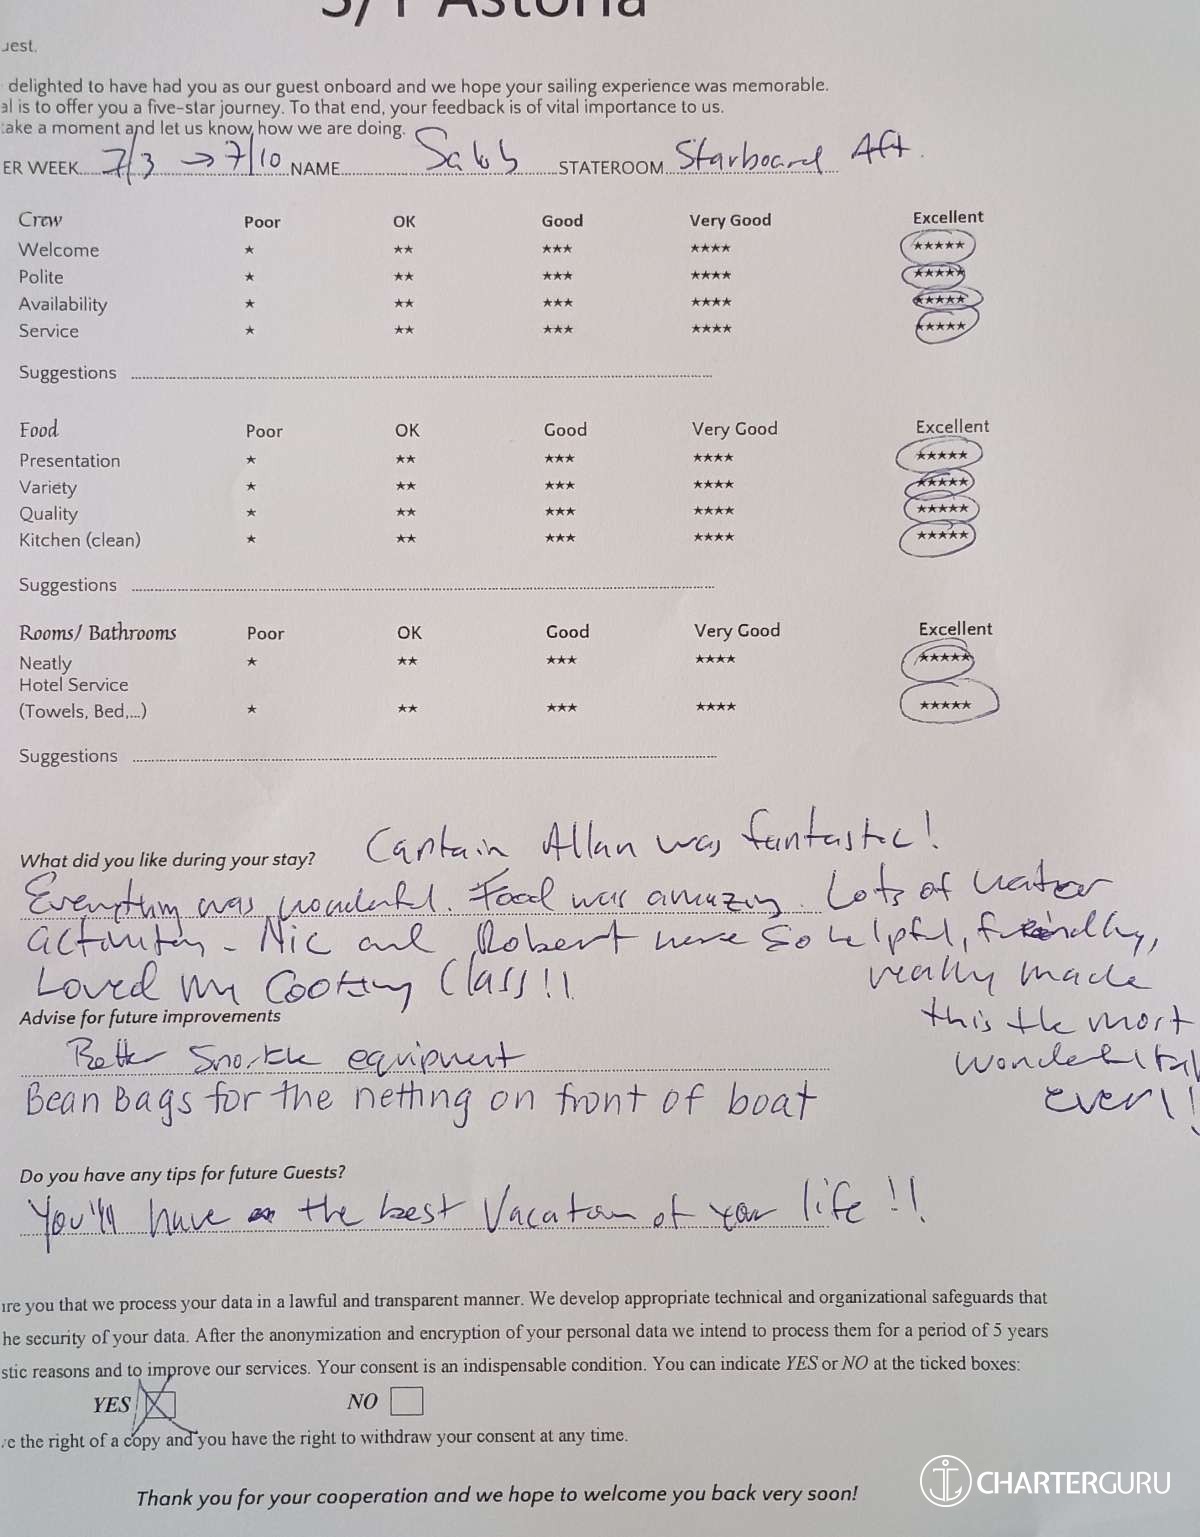 S/Y Astoria
uest.
delighted to have had you as our guest onboard and we hope your sailing experience was memorable.
al is to offer you a five-star journey. To that end, your feedback is of vital importance to us.
take a moment and let us know how we are doing.
ER WEEK 7/3 → 7/10 NAME STATEROOM Starboard Aft
Crew Poor OK Good Very Good Excellent
Welcome ★ ★★ ★★★ ★★★★ ★★★★★
Polite ★ ★★ ★★★ ★★★★ ★★★★★
Availability ★ ★★ ★★★ ★★★★ ★★★★★
Service ★ ★★ ★★★ ★★★★ ★★★★★
Suggestions
Food Poor OK Good Very Good Excellent
Presentation ★ ★★ ★★★ ★★★★ ★★★★★
Variety ★ ★★ ★★★ ★★★★ ★★★★★
Quality ★ ★★ ★★★ ★★★★ ★★★★★
Kitchen (clean) ★ ★★ ★★★ ★★★★ ★★★★★
Suggestions
Rooms/ Bathrooms Poor OK Good Very Good Excellent
Neatly ★ ★★ ★★★ ★★★★ ★★★★★
Hotel Service
(Towels, Bed,...) ★ ★★ ★★★ ★★★★ ★★★★★
Suggestions
What did you like during your stay? Captain Allan was fantastic!
Everything was wonderful. Food was amazing. Lots of water
activities - Nic and Robert were so helpful, friendly,
Loved my Cooking Class!! really made
this the most
wonderful
ever!!
Advise for future improvements
Better Snorkle equipment
Bean Bags for the netting on front of boat
Do you have any tips for future Guests?
You'll have the best Vacation of your life!!
ure you that we process your data in a lawful and transparent manner. We develop appropriate technical and organizational safeguards that
he security of your data. After the anonymization and encryption of your personal data we intend to process them for a period of 5 years
stic reasons and to improve our services. Your consent is an indispensable condition. You can indicate YES or NO at the ticked boxes:
YES NO
ve the right of a copy and you have the right to withdraw your consent at any time.
Thank you for your cooperation and we hope to welcome you back very soon!
CHARTERGURU